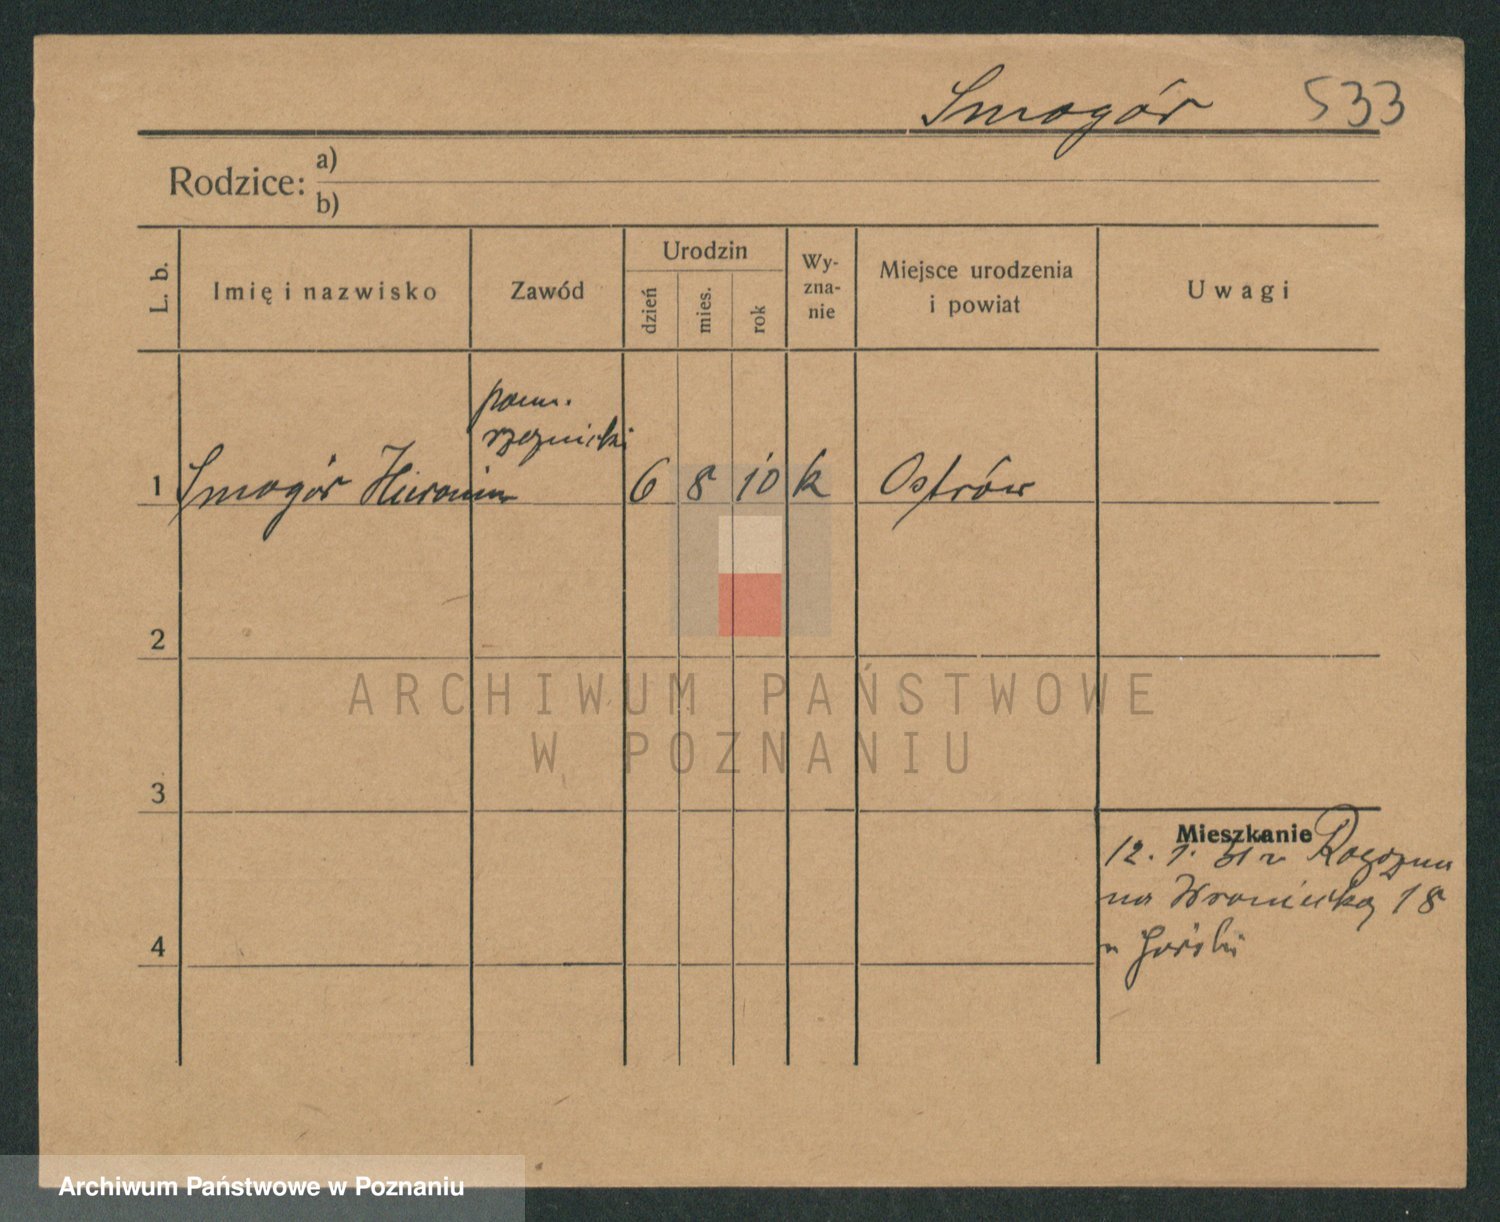 Smogór 533
Rodzice: a)
b)
L. b.
Imię i nazwisko
Zawód
Urodzin
dzień
mies.
rok
Wy-
zna-
nie
Miejsce urodzenia
i powiat
Uwagi
pom.
rzeźnicki
1 Smogór Hieronim 6 8 10 k Ostrów
2
ARCHIWUM PAŃSTWOWE
W POZNANIU
3
Mieszkanie
12. 1. 31 z Rogoźna
na Wroniecką 18
u Górski
4
Archiwum Państwowe w Poznaniu